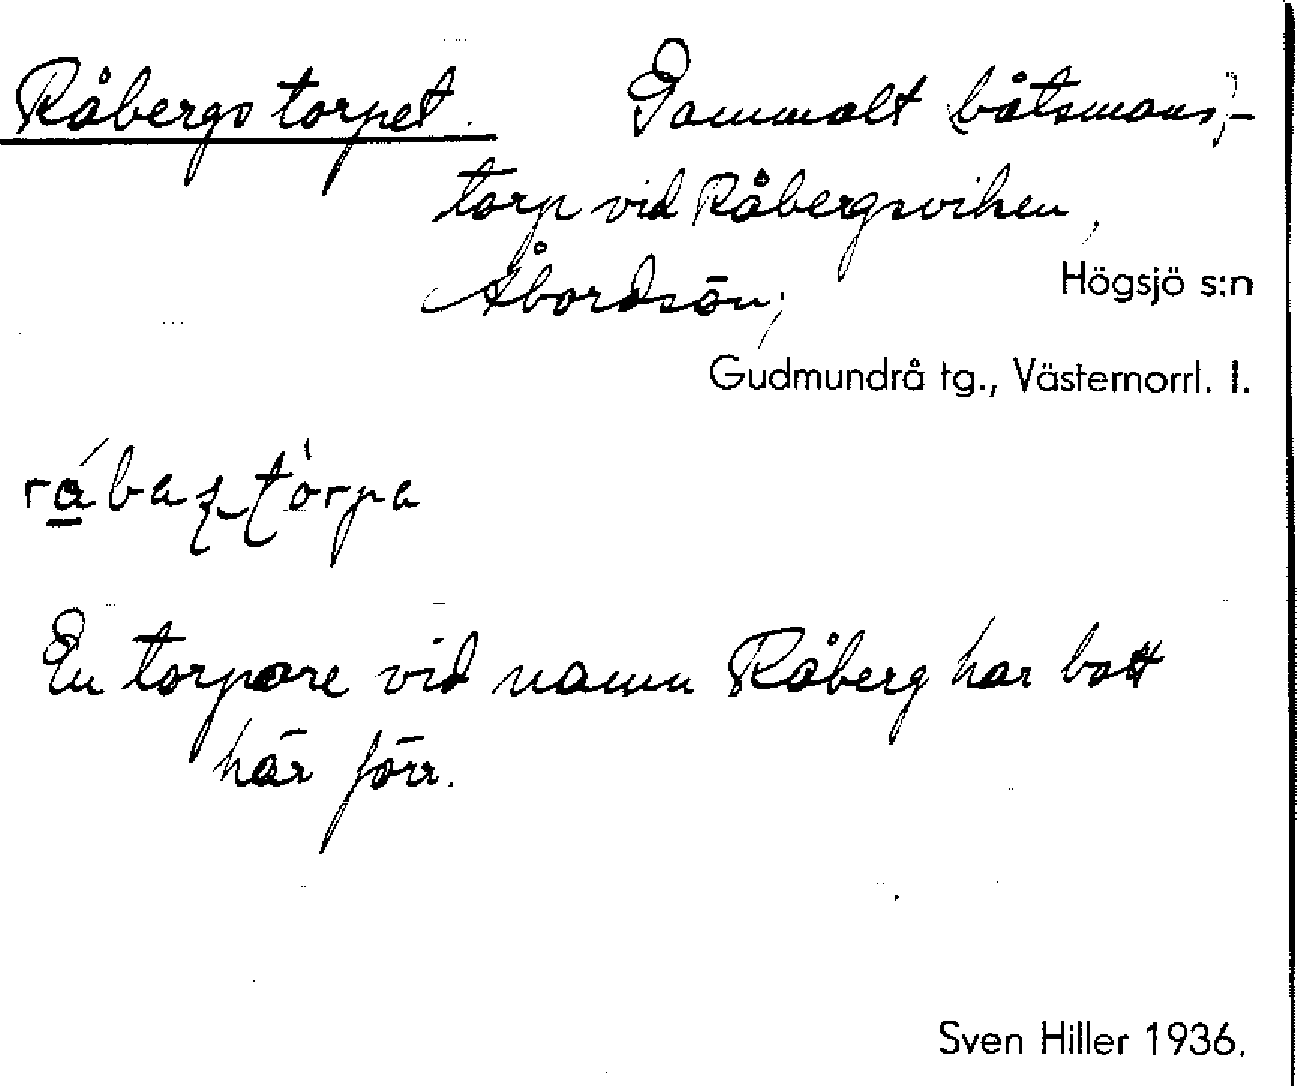 Råbergstorpet. Gammalt båtsmans-
torp vid Råbergsviken,
Åbordsön; Högsjö s:n
Gudmundrå tg., Västernorrl. l.
En torpare vid namn Råberg har bott
här förr.
Sven Hiller 1936.